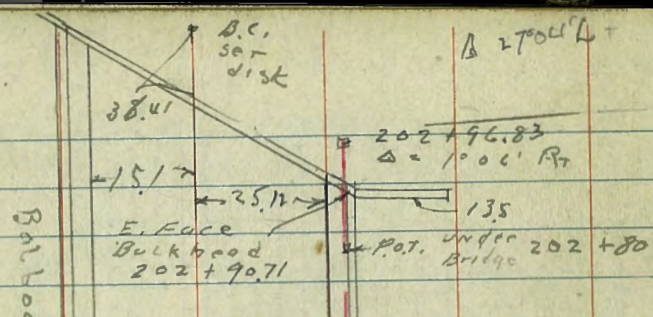 B.C.
ser
disk
Δ 27°04' L
38.41
202 + 96.83
Δ = 1°06' RT
15.1
25.12
13.5
E. Face
Bulkhead
202 + 90.71
P.O.T. under
Bridge 202 + 80